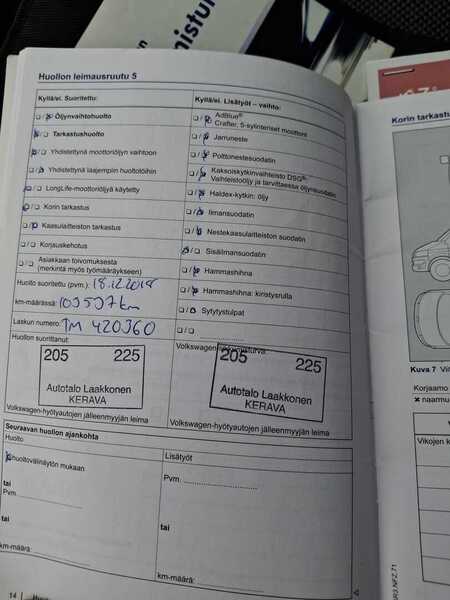 Huollon leimausruutu 5
Kyllä/ei. Suoritettu:
Öljynvaihtohuolto
Tarkastushuolto
Yhdistettynä moottoriöljyn vaihtoon
Yhdistettynä laajempiin huoltotöihin
LongLife-moottoriöljyä käytetty
Korin tarkastus
Kaasulaitteiston tarkastus
Korjauskehotus
Asiakkaan toivomuksesta
(merkintä myös työmääräykseen)
Huolto suoritettu (pvm.) 18.12.2018
km-määrässä: 103537km
Laskun numero: TM 420360
Huollon suorittanut:
205 225
Autotalo Laakkonen
KERAVA
Volkswagen-hyötyautojen jälleenmyyjän leima
Kyllä/ei. Lisätyöt – vaihto:
AdBlue®
Crafter, 5-sylinteriset moottorit
Jarruneste
Polttonestesuodatin
Kaksoiskytkinvaihteisto DSG®:
Vaihteistoöljy ja tarvittaessa öljynsuodatin
Haldex-kytkin: öljy
Ilmansuodatin
Nestekaasulaitteiston suodatin
Sisäilmansuodatin
Hammashihna
Hammashihna: kiristysrulla
Sytytystulpat
205 225
Autotalo Laakkonen
KERAVA
Volkswagen-hyötyautojen jälleenmyyjän leima
Seuraavan huollon ajankohta
Huolto
huoltovälinäytön mukaan
tai
Pvm.
tai
km-määrä:
Lisätyöt
Pvm.
tai
km-määrä:
14
Korin tarkastu
Kuva 7
Korjaamo
naarmu
Vikojen k